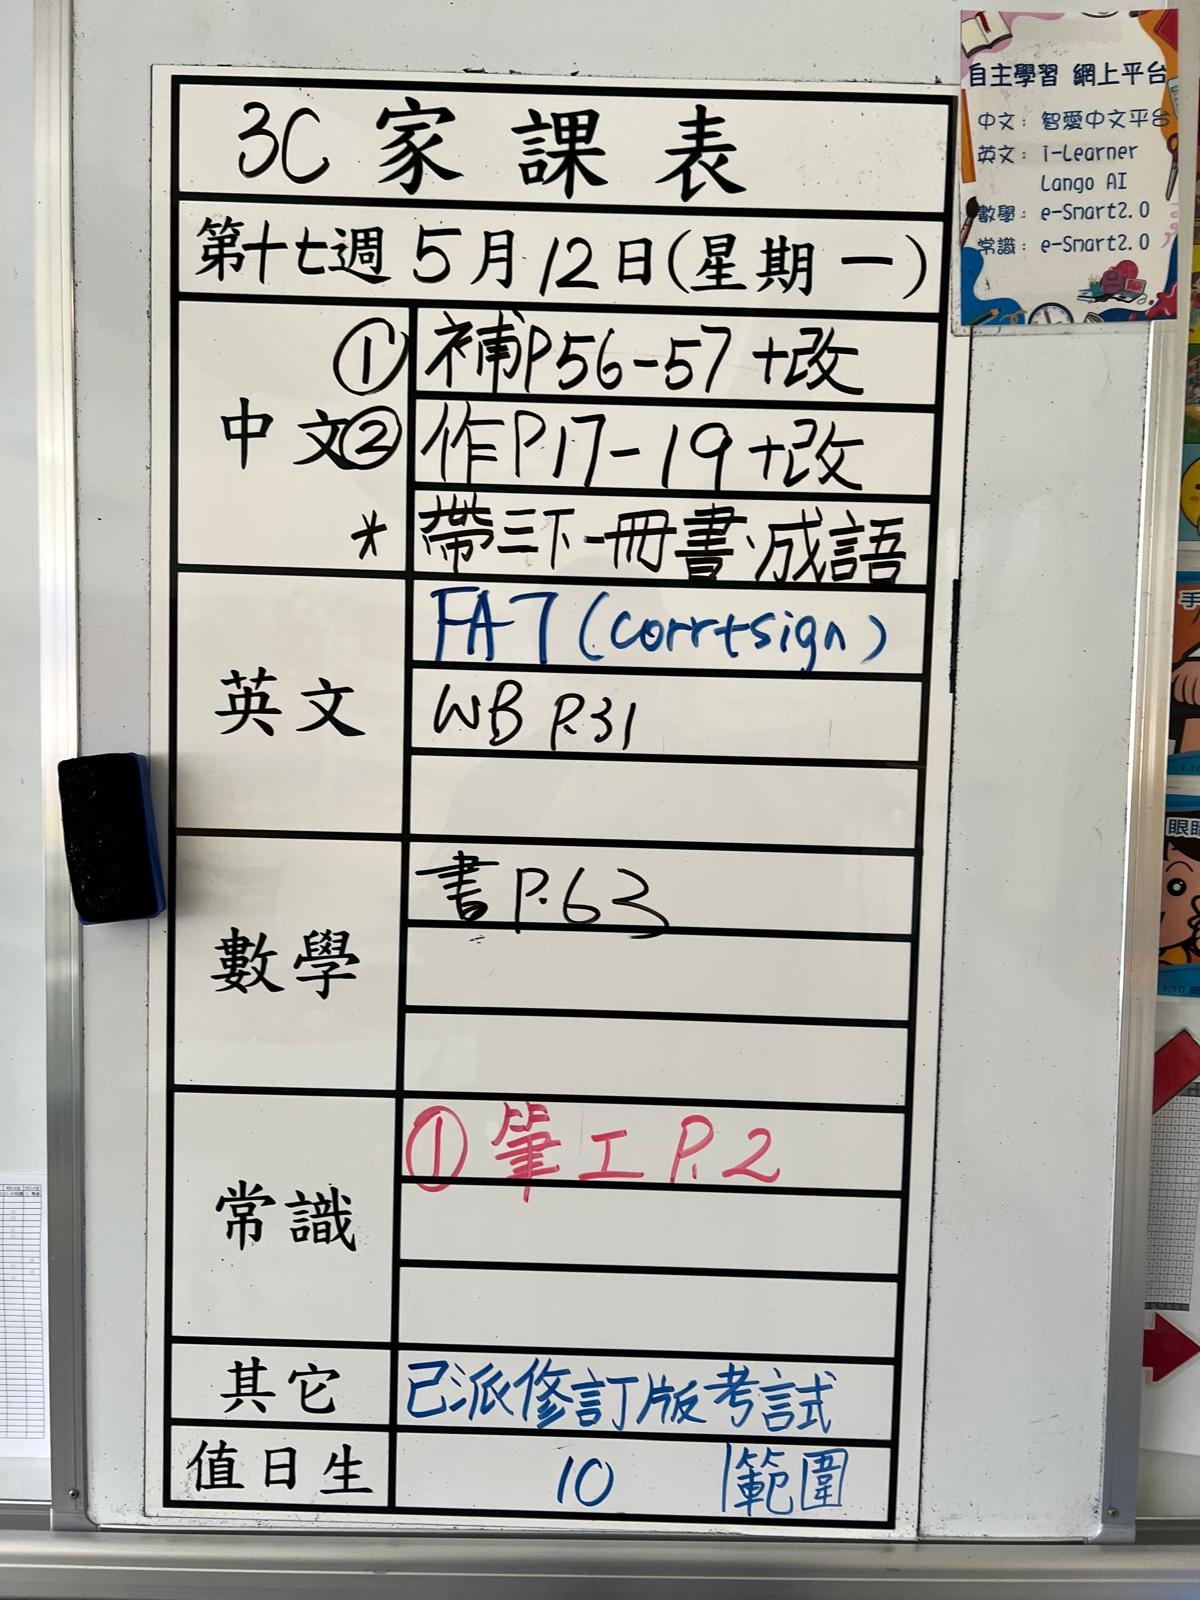 3C 家課表
第十七週 5月12日(星期一)
中文
① 補P56-57+改
② 作P17-19+改
* 帶三下一冊書、成語
英文
FA7 (corr+sign)
WB P.31
數學
書 P.63
常識
① 筆工 P.2
其它
已派修訂版考試
範圍
值日生
10
自主學習 網上平台
中文: 智愛中文平台
英文: i-Learner
Lango AI
數學: e-Smart2.0
常識: e-Smart2.0
手
眼睛